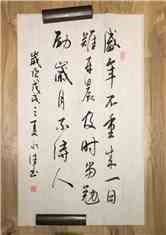 盛年不重来一日
难再晨及时当勉
励岁月不待人
岁在戊戌之夏